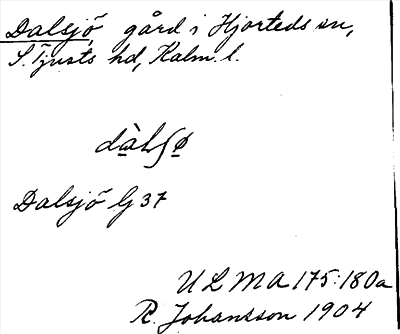 Dalsjö, gård i Hjorteds sn,
S. Tjusts hd, Kalm. l.
dàlʃø
Dalsjö G 37
ULMA 175:180a
R. Johansson 1904